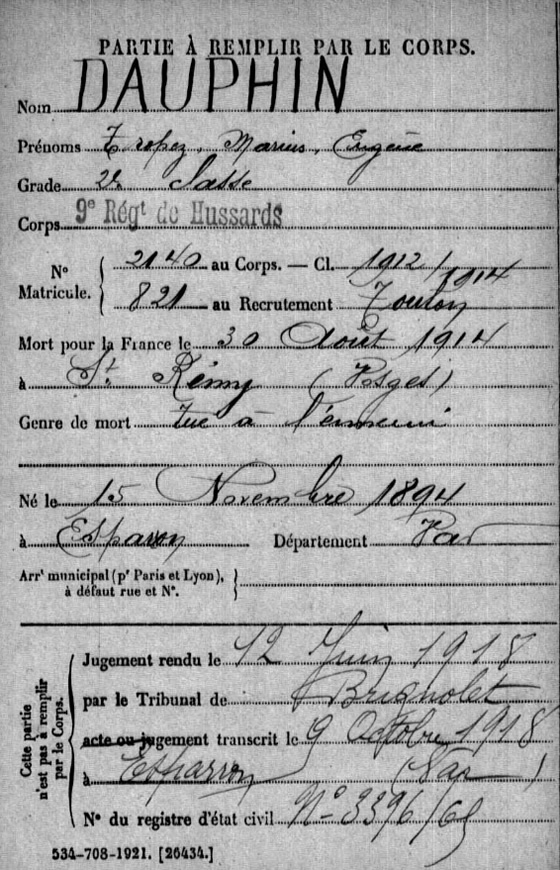 PARTIE À REMPLIR PAR LE CORPS.
Nom DAUPHIN
Prénoms Tropez, Marius, Eugène
Grade 2e classe
Corps 9e Régt de Hussards
N° Matricule. { 2140 au Corps. — Cl. 1912/1914
821 au Recrutement Toulon
Mort pour la France le 30 Août 1914
à St. Rémy (Vosges)
Genre de mort tué à l'ennemi
Né le 15 Novembre 1894
à Esparron Département Var
Arrt municipal (pr Paris et Lyon), }
à défaut rue et N°.
Cette partie n'est pas à remplir par le Corps.
Jugement rendu le 12 Juin 1918
par le Tribunal de Brignoles
acte ou jugement transcrit le 9 Octobre 1918
à Esparron (Var)
N° du registre d'état civil N° 3396/
534-708-1921. [26434.]